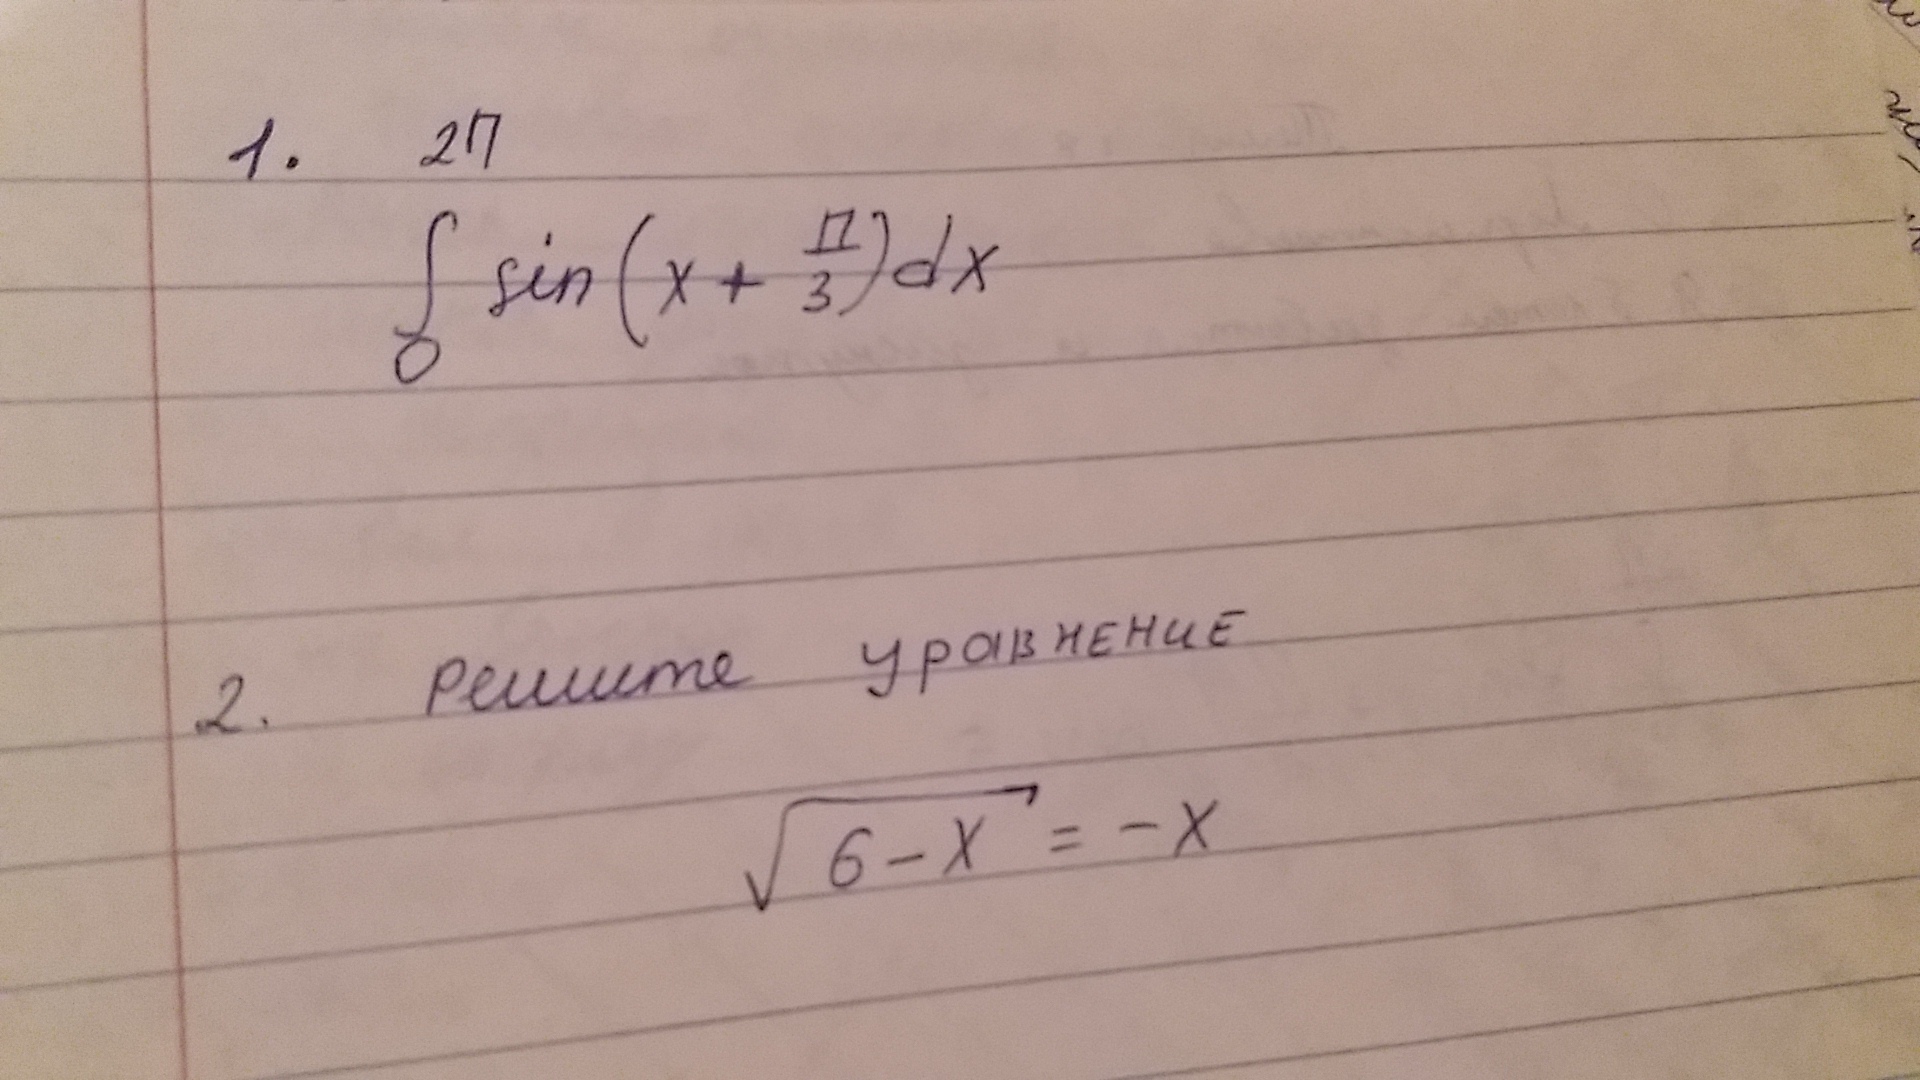 1. 2π
∫ sin(x + π/3)dx
0
2. Решите уравнение
√6-x = -x